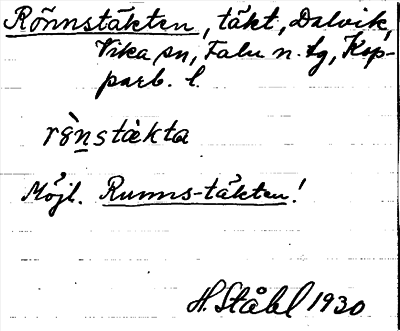 Rönnstäkten, täkt, Dalvik,
Vika sn, Falu n. tg, Kop-
parb. l.
rö̀nstäkta
Möjl. Runns-täkten!
H. Ståhl 1930